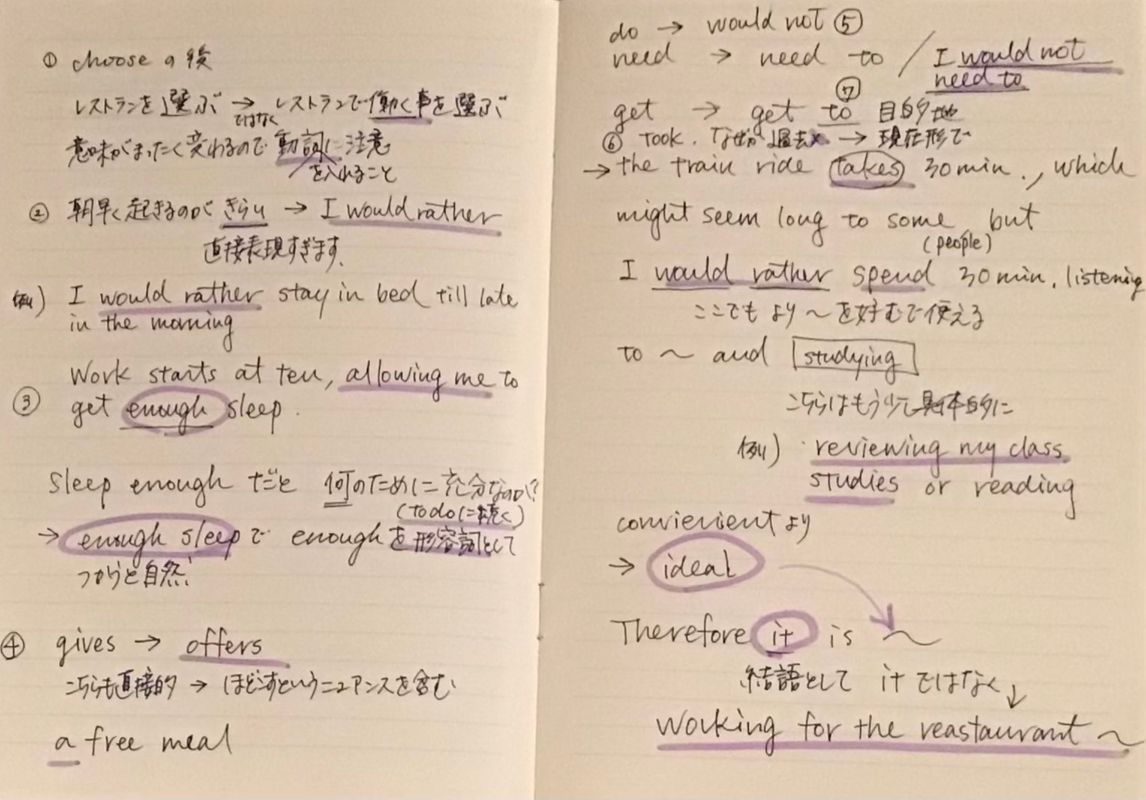 ① chooseの後
レストランを選ぶ → レストランで働く事を選ぶ
ではなく
意味がまったく変わるので動詞に注意
を入れること
② 朝早く起きるのがきらい → I would rather
直接表現すぎます、
例) I would rather stay in bed till late
in the morning
Work starts at ten, allowing me to
③ get enough sleep.
Sleep enough だと 何のために充分なのか?
(to doに続く)
→ enough sleepで enoughを形容詞として
つかうと自然!
④ gives → offers
こちらも直接的 → ほどこすというニュアンスを含む
a free meal
do → would not ⑤
need → need to / I would not
need to
get → get to ⑦ 目的地
⑥ took. なぜか過去 → 現在形で
→ the train ride takes 30 min., which
might seem long to some but
(people)
I would rather spend 30 min. listening
ここでも より〜を好むで使える
to 〜 and studying
こちらはもう少し具体的に
例) reviewing my class
studies or reading
convienientより
→ ideal
Therefore it is 〜
結語として itではなく↓
Working for the reastaurant 〜